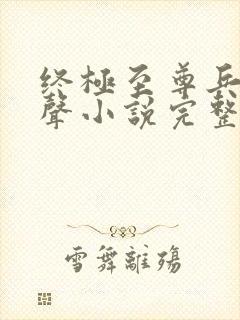 终極至尊兵
聲小説完整
雪舞離殤